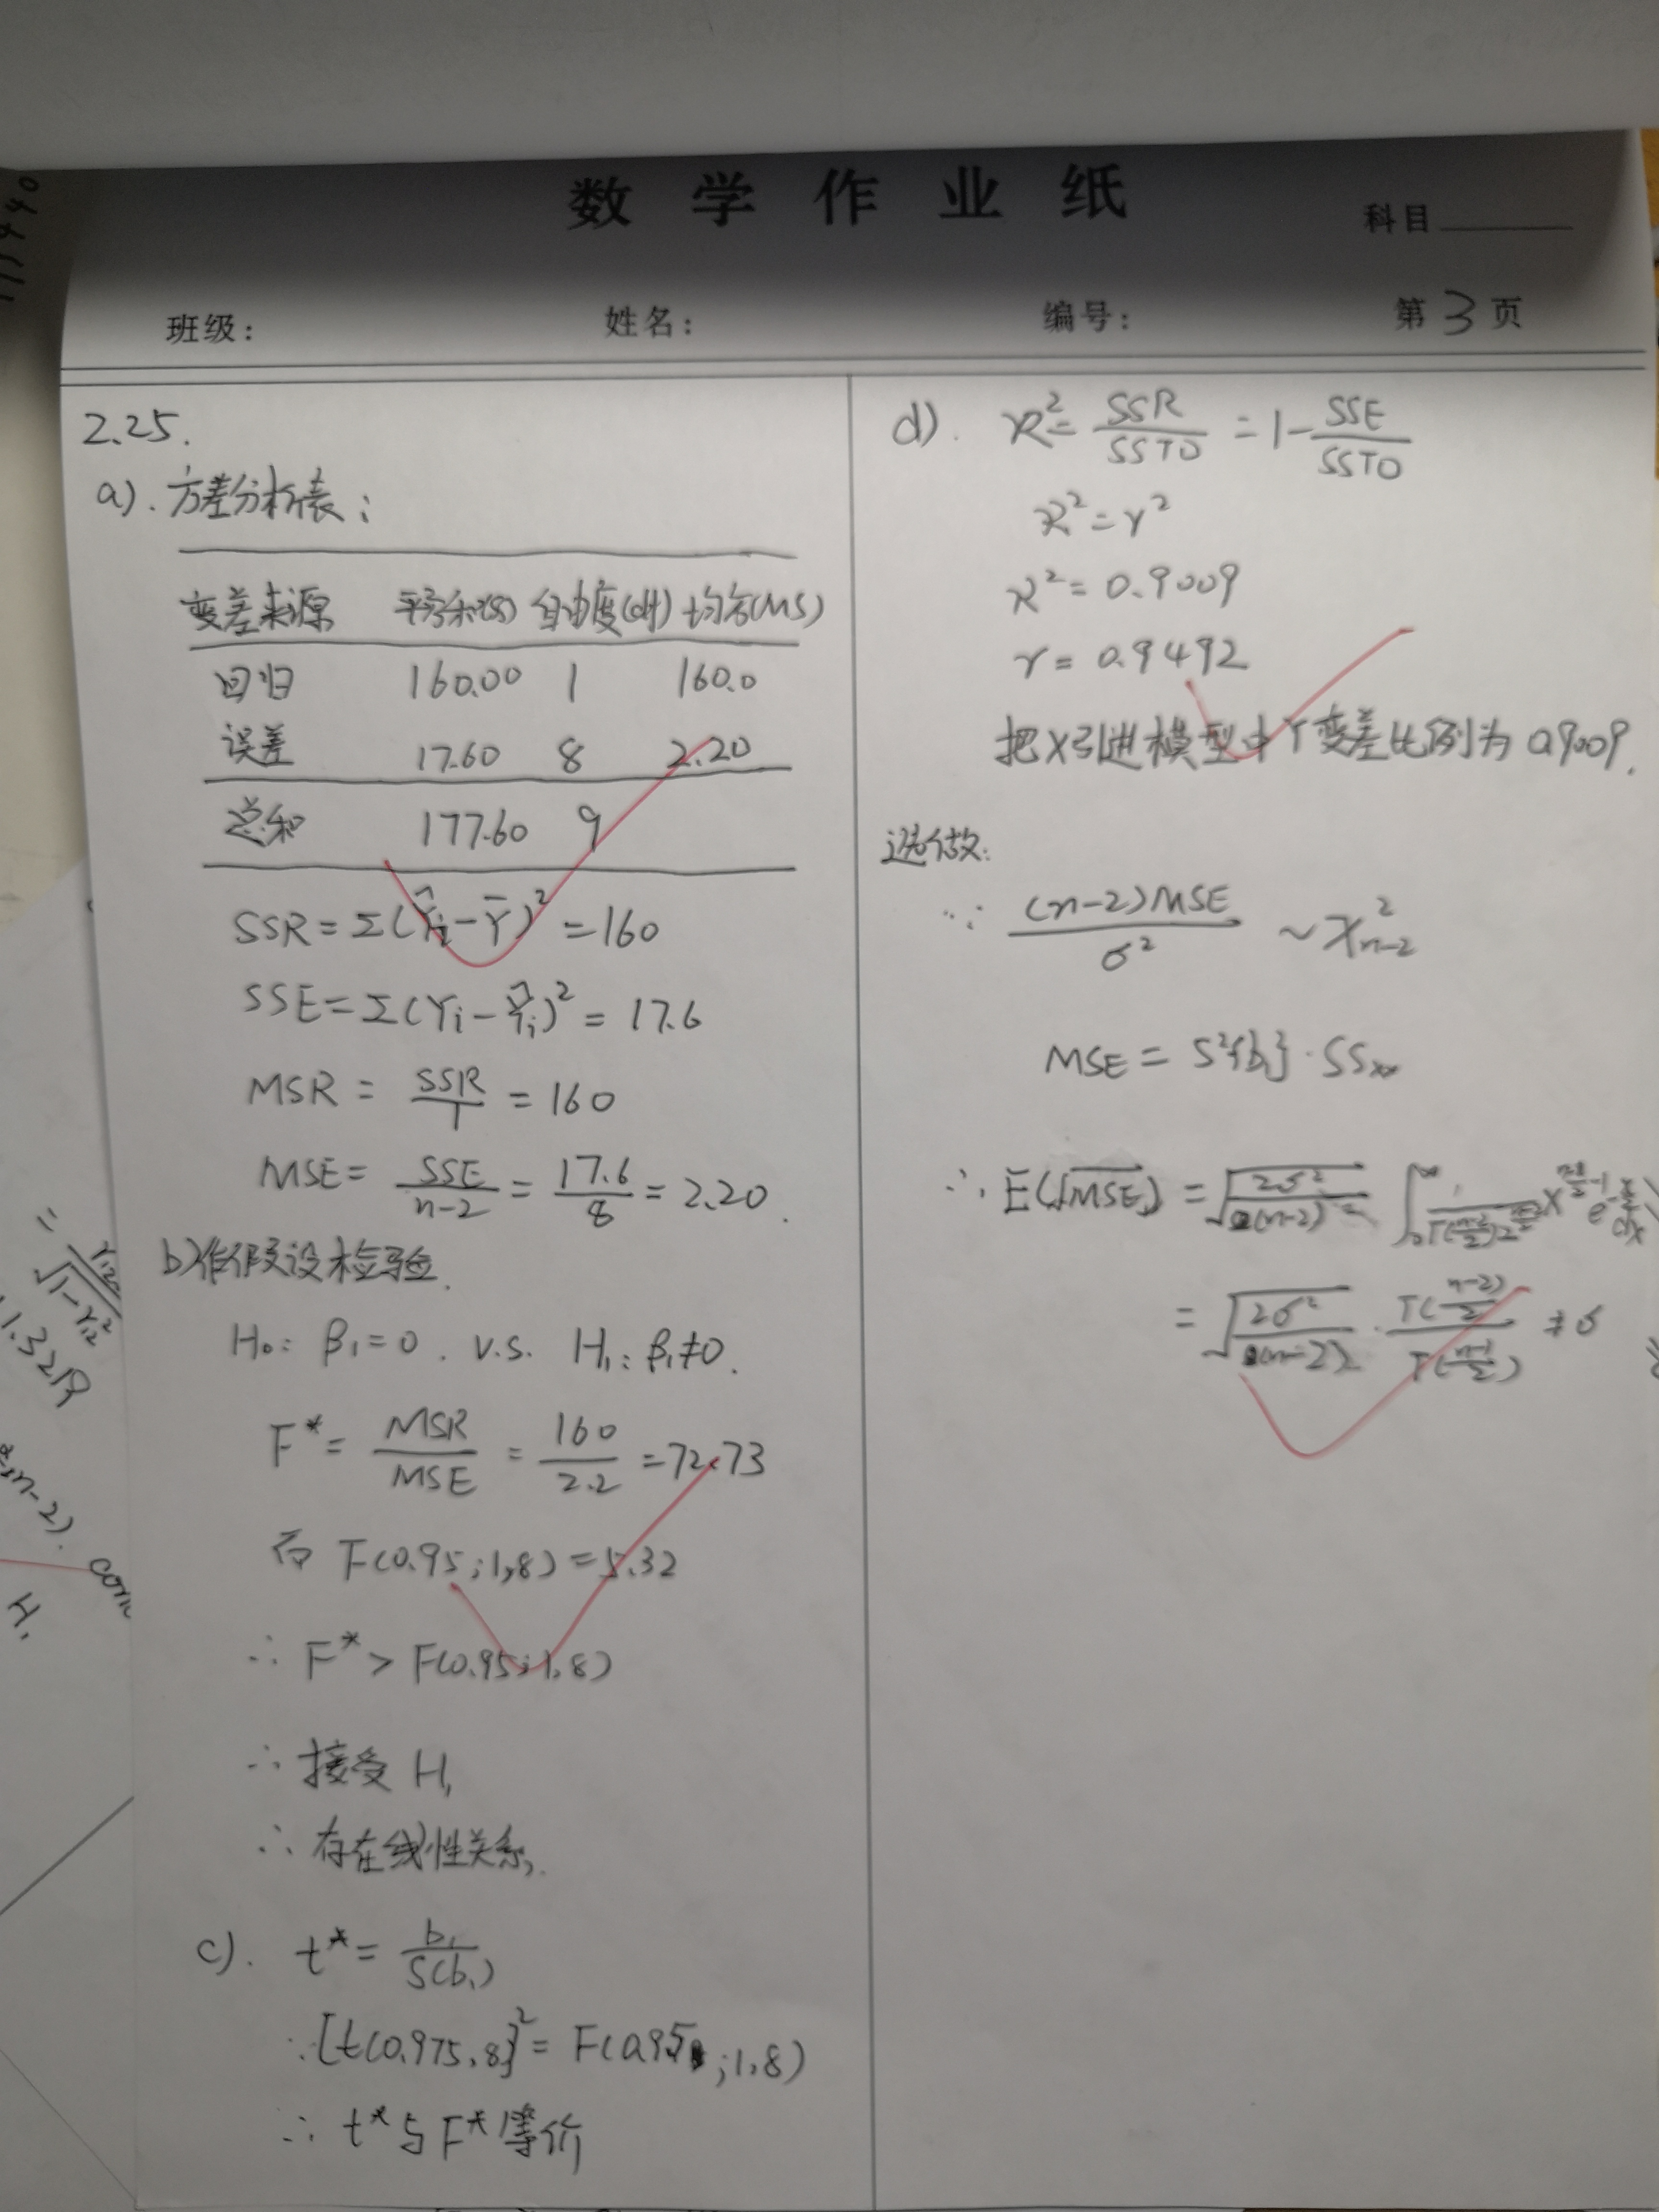 数 学 作 业 纸
科目
班级:
姓名:
编号:
第 3 页
2.25.
a). 方差分析表:
变差来源 平方和(SS) 自由度(df) 均方(MS)
回归 160.00 1 160.0
误差 17.60 8 2.20
总和 177.60 9
SSR = Σ(Ŷi - Ȳ)² = 160
SSE = Σ(Yi - Ŷi)² = 17.6
MSR = SSR/1 = 160
MSE = SSE/(n-2) = 17.6/8 = 2.20.
b)作假设检验.
H₀: β₁=0. v.s. H₁: β₁≠0.
F* = MSR/MSE = 160/2.2 = 72.73
而 F(0.95;1,8) = 5.32
∴ F* > F(0.95;1,8)
∴ 接受 H₁
∴ 存在线性关系.
c). t* = b₁/S(b₁)
∵[t(0.975,8)]² = F(0.95;1,8)
∴ t*与F*等价
d). R² = SSR/SSTO = 1 - SSE/SSTO
R² = r²
R² = 0.9009
r = 0.9492
把X引进模型中Y变差比例为0.9009.
选做:
∵ (n-2)MSE/σ² ~ χ²n-2
MSE = S²{b₁}·SSxx
∴ E(√MSE) = √(2σ²/(n-2))
= √(2σ²/(n-2)) · Γ((n-2)/2)/Γ((n-1)/2) ≠ σ
1.32
n-2).
H.